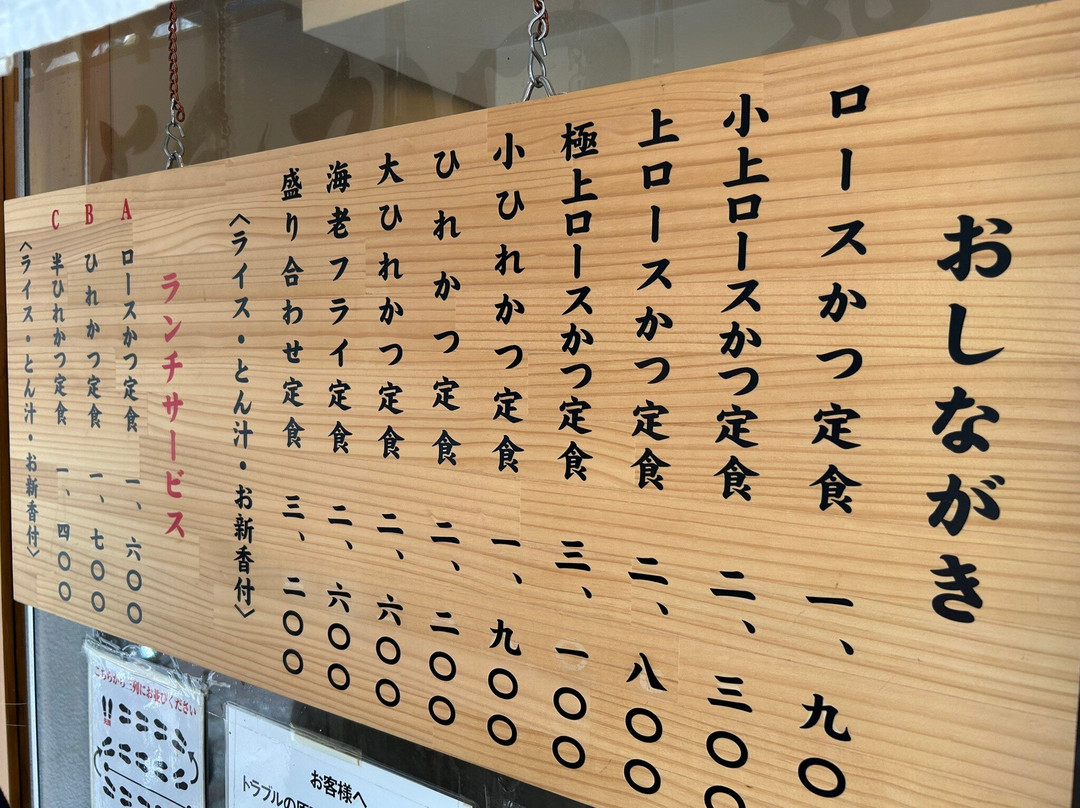 おしながき
ロースかつ定食 一、九〇
小上ロースかつ定食 二、三〇〇
上ロースかつ定食 二、八〇〇
極上ロースかつ定食 三、一〇〇
小ひれかつ定食 一、九〇〇
ひれかつ定食 二、二〇〇
大ひれかつ定食 二、六〇〇
海老フライ定食 二、六〇〇
盛り合わせ定食 三、二〇〇
〈ライス・とん汁・お新香付〉
ランチサービス
A ロースかつ定食 一、六〇〇
B ひれかつ定食 一、七〇〇
C 半ひれかつ定食 一、四〇〇
〈ライス・とん汁・お新香付〉
こちらから三列にお並びください
お客様へ
トラブルの原